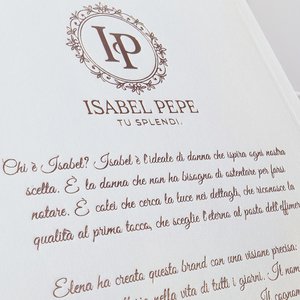 IP
ISABEL PEPE
TU SPLENDI.
Chi è Isabel? Isabel è l'ideale di donna che ispira ogni nostra
scelta. È la donna che non ha bisogno di ostentare per farsi
notare. È colei che cerca la luce nei dettagli, che riconosce la
qualità al primo tocco, che sceglie l'eterno al posto dell'effimero
Elena ha creato questo brand con una visione precisa:
nella vita di tutti i giorni. Il nome
Il cognome